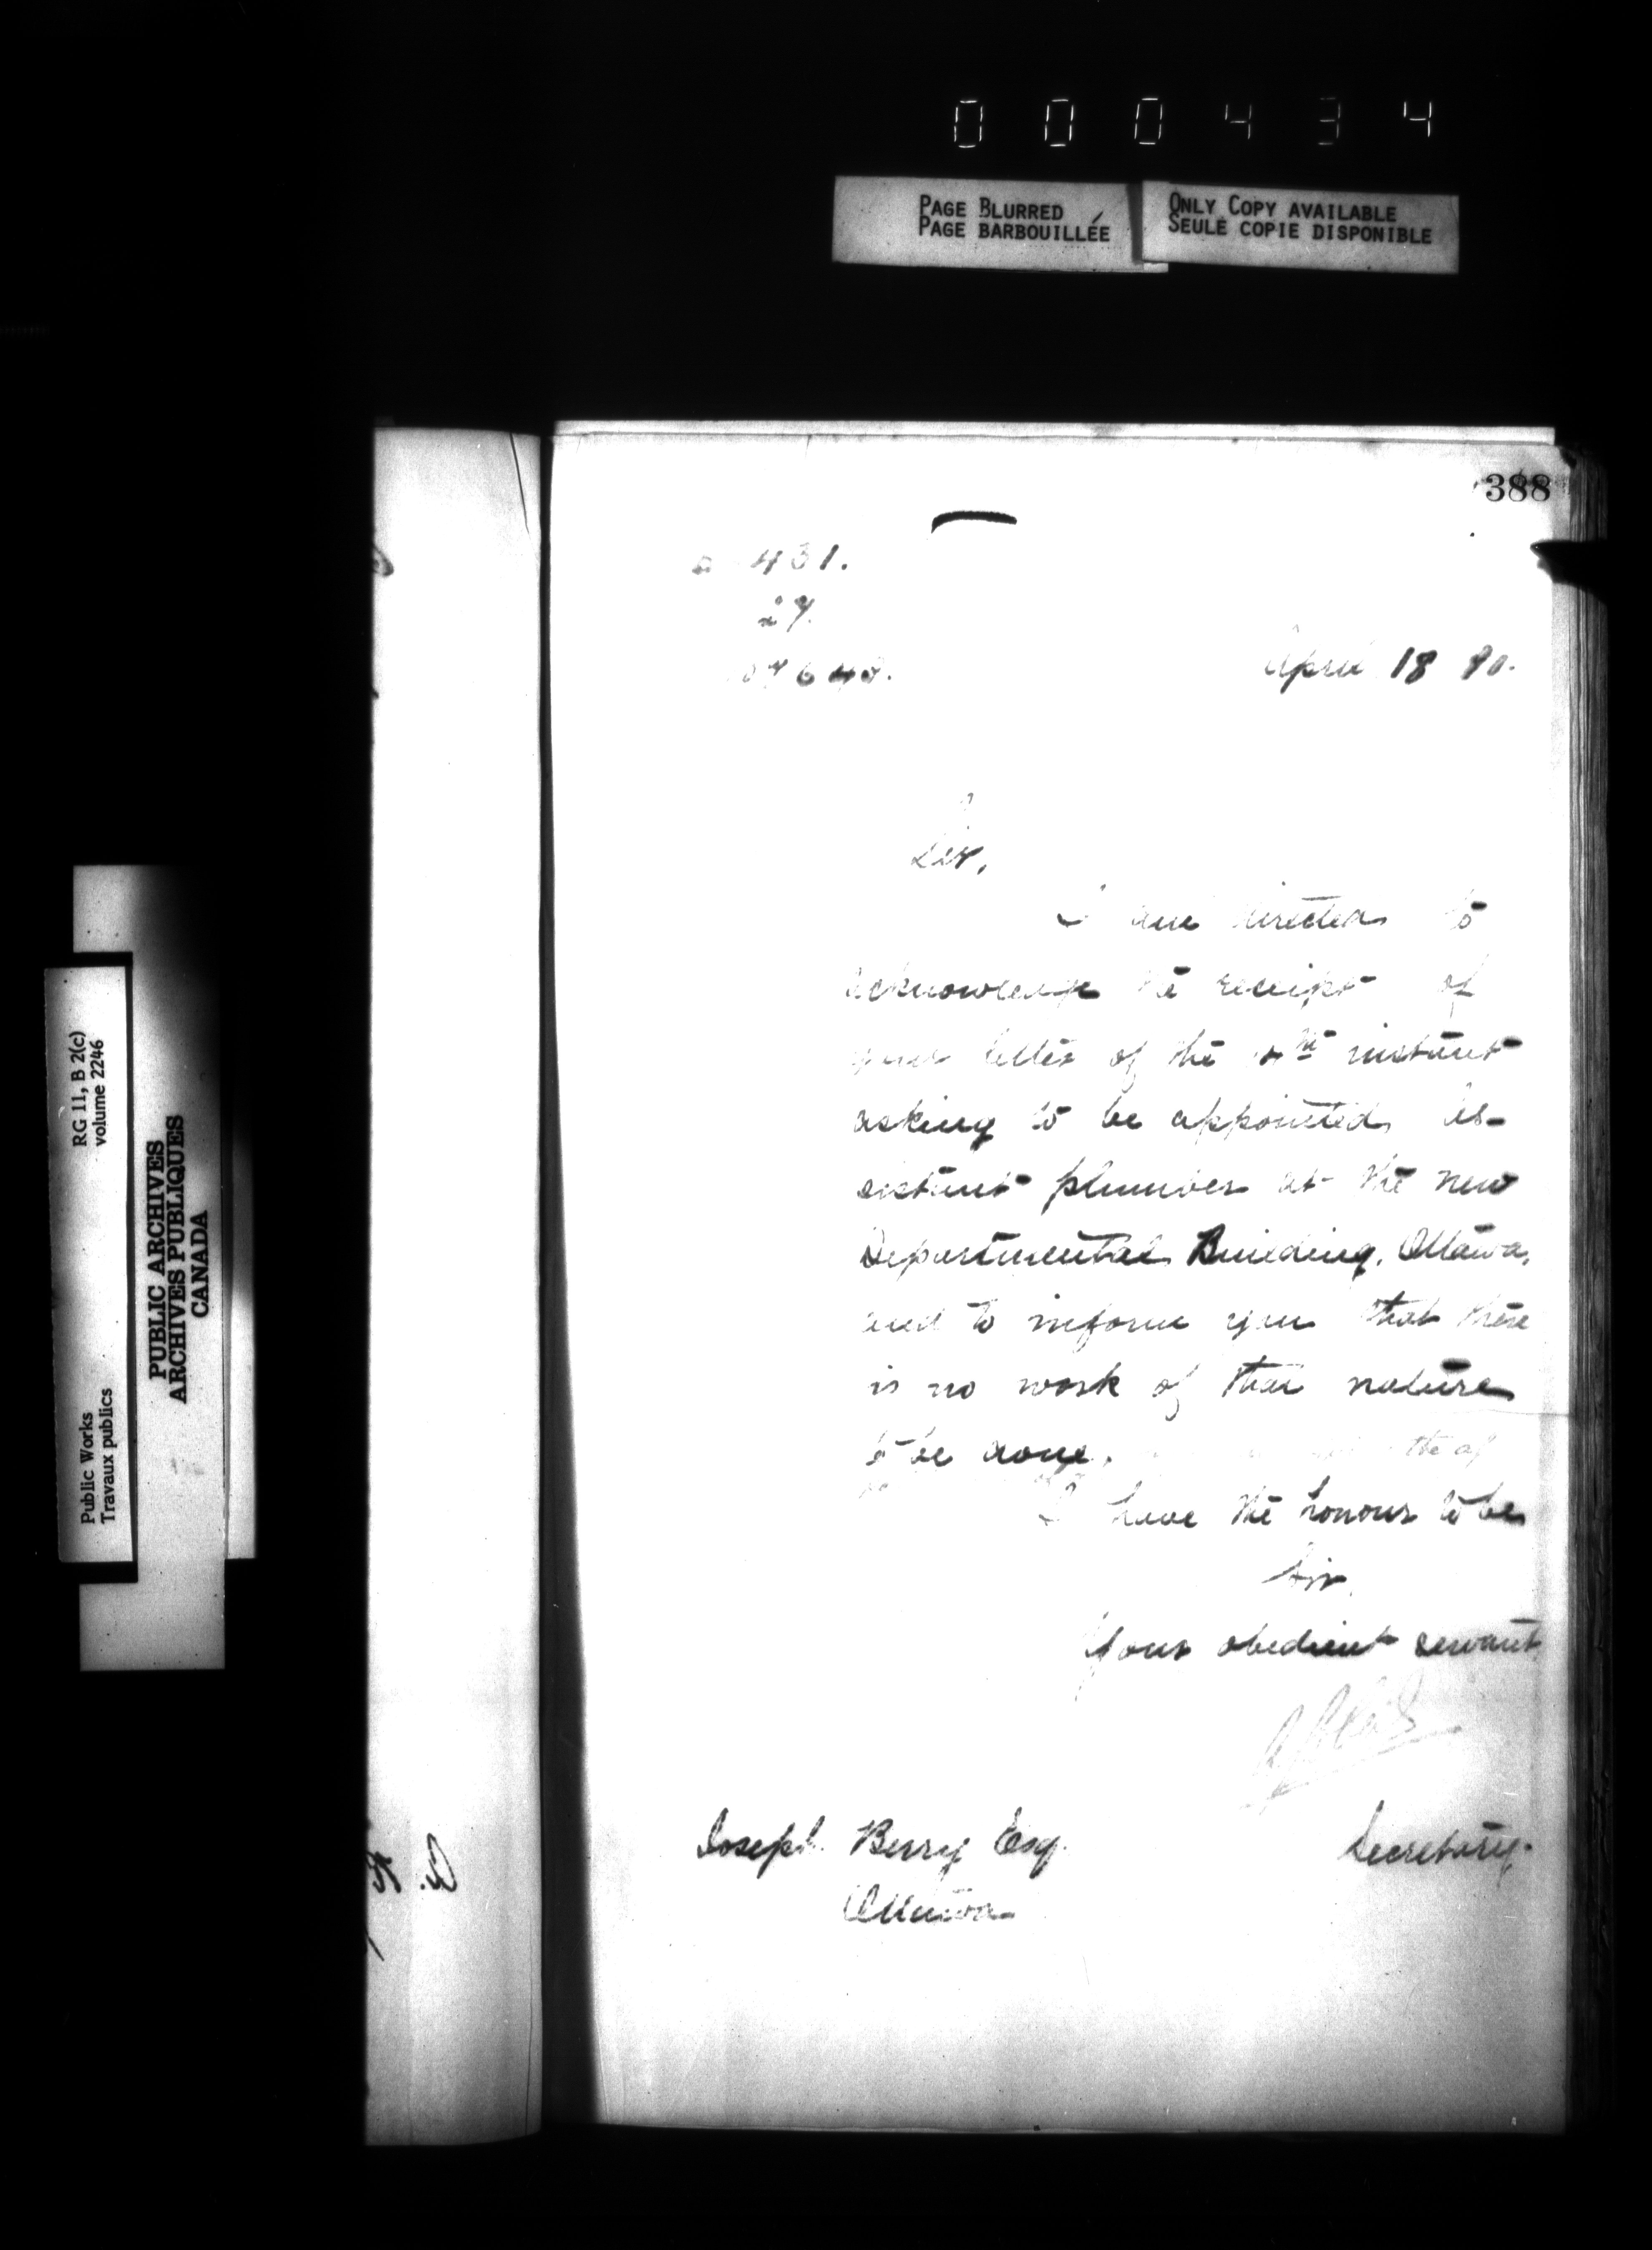 000434
PAGE BLURRED
PAGE BARBOUILLÉE
ONLY COPY AVAILABLE
SEULE COPIE DISPONIBLE
388
431.
27.
April 18 90.
Sir,
I am directed to
acknowledge the receipt of
your letter of the instant
asking to be appointed As-
sistant plumber at the new
Departmental Building, Ottawa,
and to inform you that there
is no work of that nature
to be done.
I have the honour to be
Sir,
Your obedient servant
Secretary.
Joseph Berry Esq.
Ottawa
RG 11, B 2(c)
volume 2246
Public Works
Travaux publics
PUBLIC ARCHIVES
ARCHIVES PUBLIQUES
CANADA